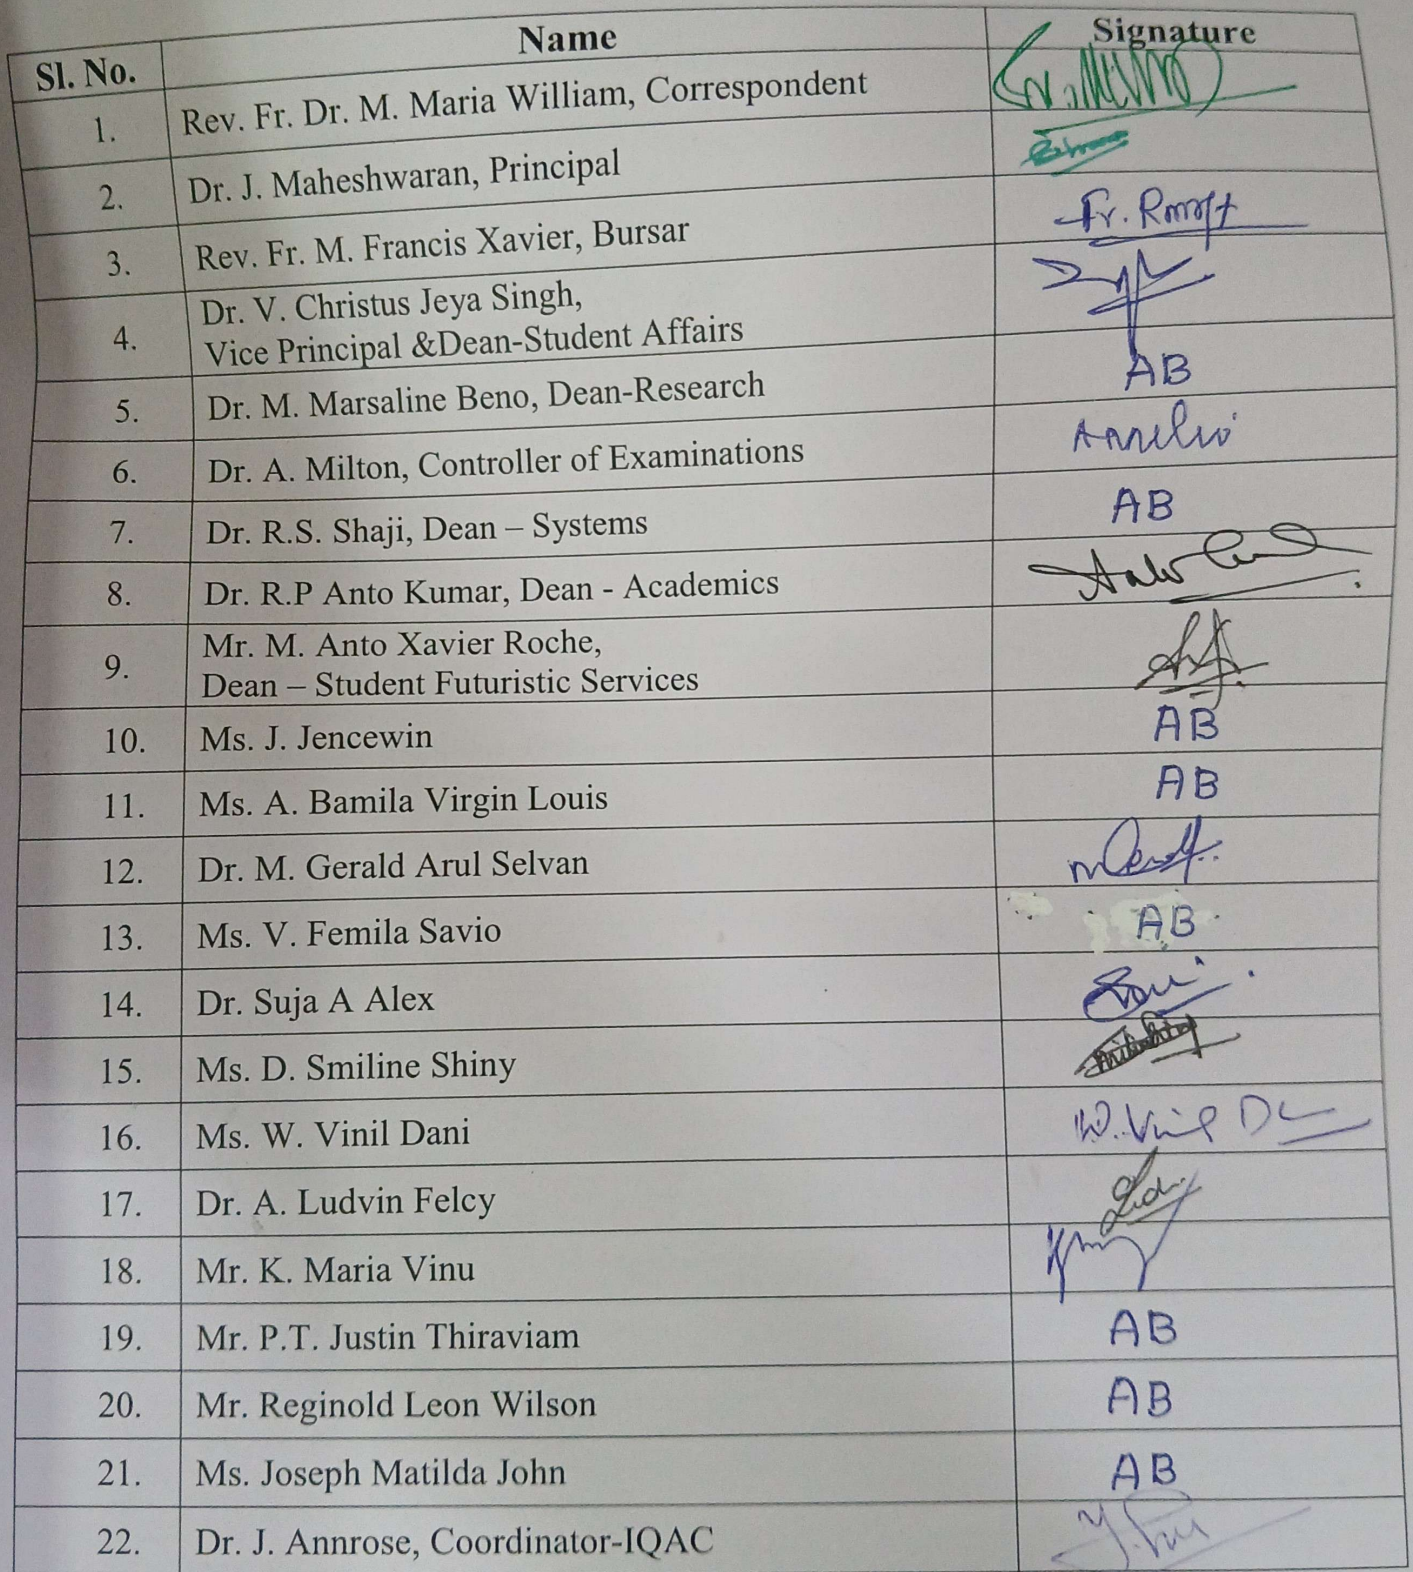 Sl. No. Name Signature
1. Rev. Fr. Dr. M. Maria William, Correspondent
2. Dr. J. Maheshwaran, Principal
3. Rev. Fr. M. Francis Xavier, Bursar Fr.
4. Dr. V. Christus Jeya Singh,
Vice Principal &Dean-Student Affairs
5. Dr. M. Marsaline Beno, Dean-Research AB
6. Dr. A. Milton, Controller of Examinations
7. Dr. R.S. Shaji, Dean – Systems AB
8. Dr. R.P Anto Kumar, Dean - Academics
9. Mr. M. Anto Xavier Roche,
Dean – Student Futuristic Services
10. Ms. J. Jencewin AB
11. Ms. A. Bamila Virgin Louis AB
12. Dr. M. Gerald Arul Selvan
13. Ms. V. Femila Savio AB
14. Dr. Suja A Alex
15. Ms. D. Smiline Shiny
16. Ms. W. Vinil Dani
17. Dr. A. Ludvin Felcy
18. Mr. K. Maria Vinu
19. Mr. P.T. Justin Thiraviam AB
20. Mr. Reginold Leon Wilson AB
21. Ms. Joseph Matilda John AB
22. Dr. J. Annrose, Coordinator-IQAC